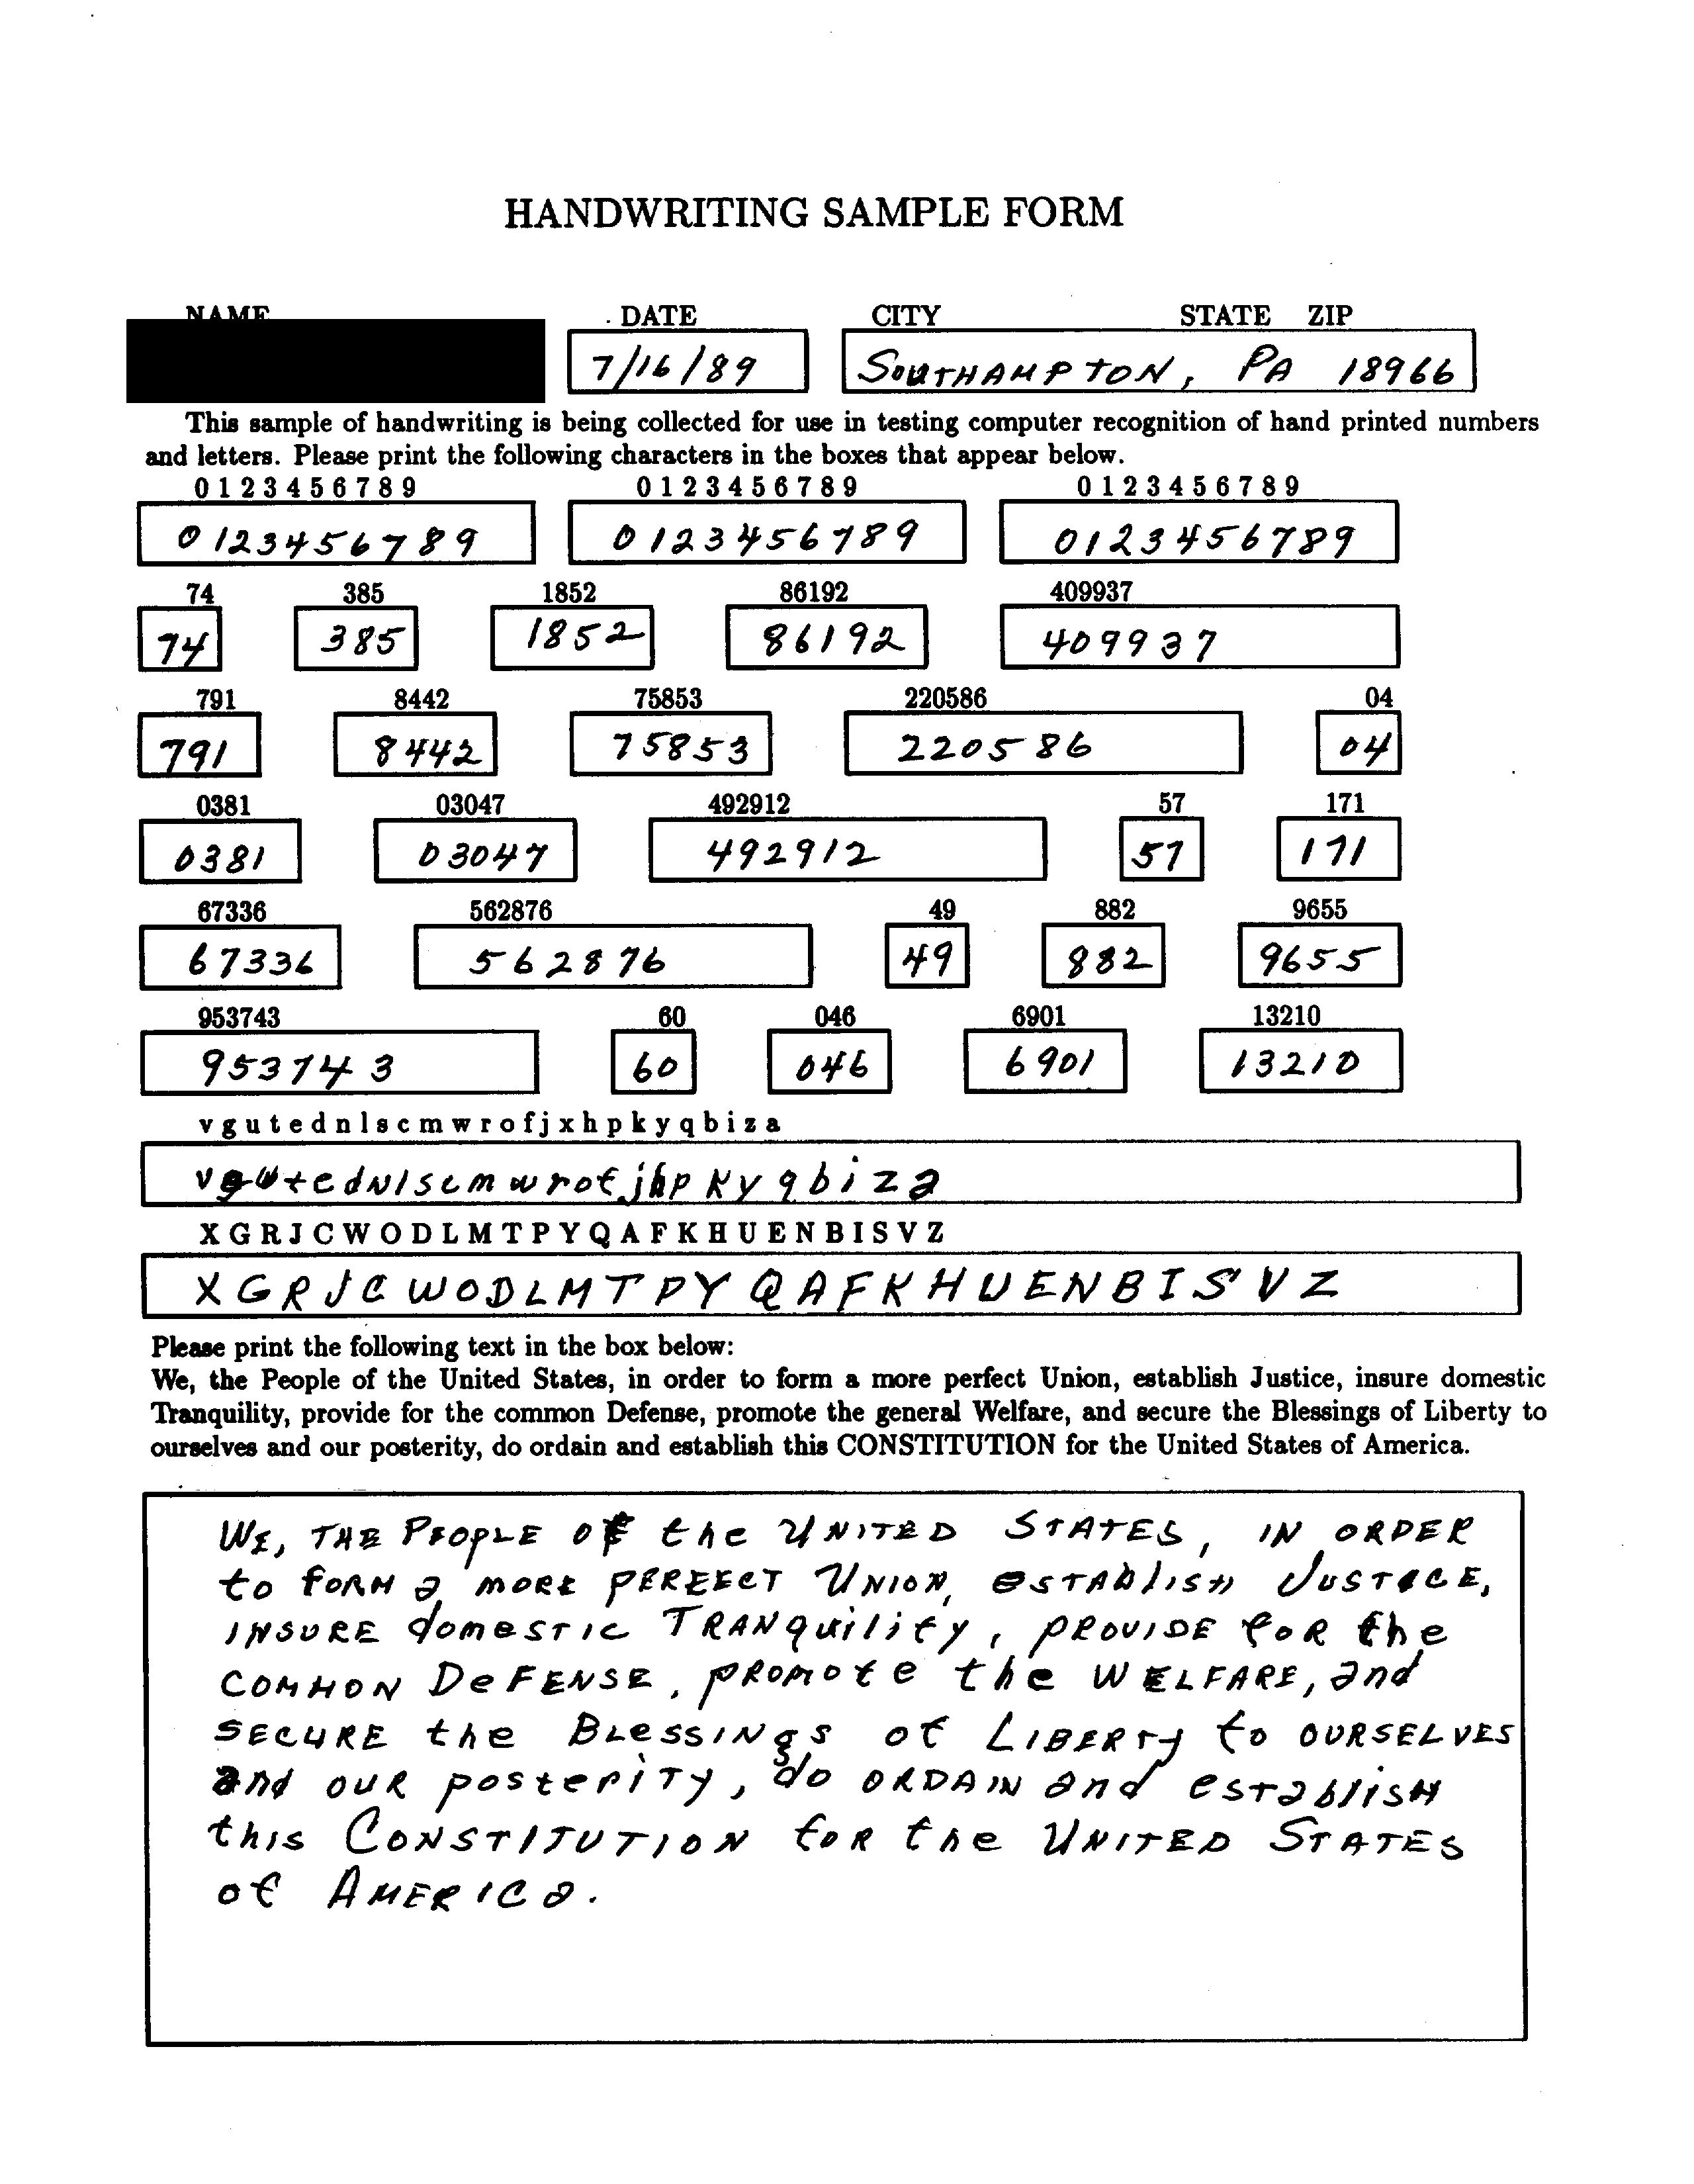 HANDWRITING SAMPLE FORM
NAME DATE CITY STATE ZIP
7/16/89 SOUTHAMPTON, PA 18966
This sample of handwriting is being collected for use in testing computer recognition of hand printed numbers
and letters. Please print the following characters in the boxes that appear below.
0 1 2 3 4 5 6 7 8 9 0 1 2 3 4 5 6 7 8 9 0 1 2 3 4 5 6 7 8 9
0123456789 0123456789 0123456789
74 385 1852 86192 409937
74 385 1852 86192 409937
791 8442 75853 220586 04
791 8442 75853 220586 04
0381 03047 492912 57 171
0381 03047 492912 57 171
67336 562876 49 882 9655
67336 562876 49 882 9655
953743 60 046 6901 13210
953743 60 046 6901 13210
v g u t e d n l s c m w r o f j x h p k y q b i z a
v g u t e d N l s c m w r o f j h p K y q b i z a
X G R J C W O D L M T P Y Q A F K H U E N B I S V Z
X G R J C W O D L M T P Y Q A F K H U E N B I S V Z
Please print the following text in the box below:
We, the People of the United States, in order to form a more perfect Union, establish Justice, insure domestic
Tranquility, provide for the common Defense, promote the general Welfare, and secure the Blessings of Liberty to
ourselves and our posterity, do ordain and establish this CONSTITUTION for the United States of America.
WE, THE PEOPLE OF the UNITED STATES, IN ORDER
to foRM a MORE PERFECT UNION, eSTAblISH JUSTICE,
INSURE domeSTIC TRANquility, PROVIDE foR the
COMMON DeFENSE, PROMOte the WELFARE, and
SECURE the BLeSSINgS of LIBERTy to OURSELVES
and OUR posteRITy, do ORDAIN and eSTablISH
this CONSTITUTION foR the UNITED STATES
of AMERICa.